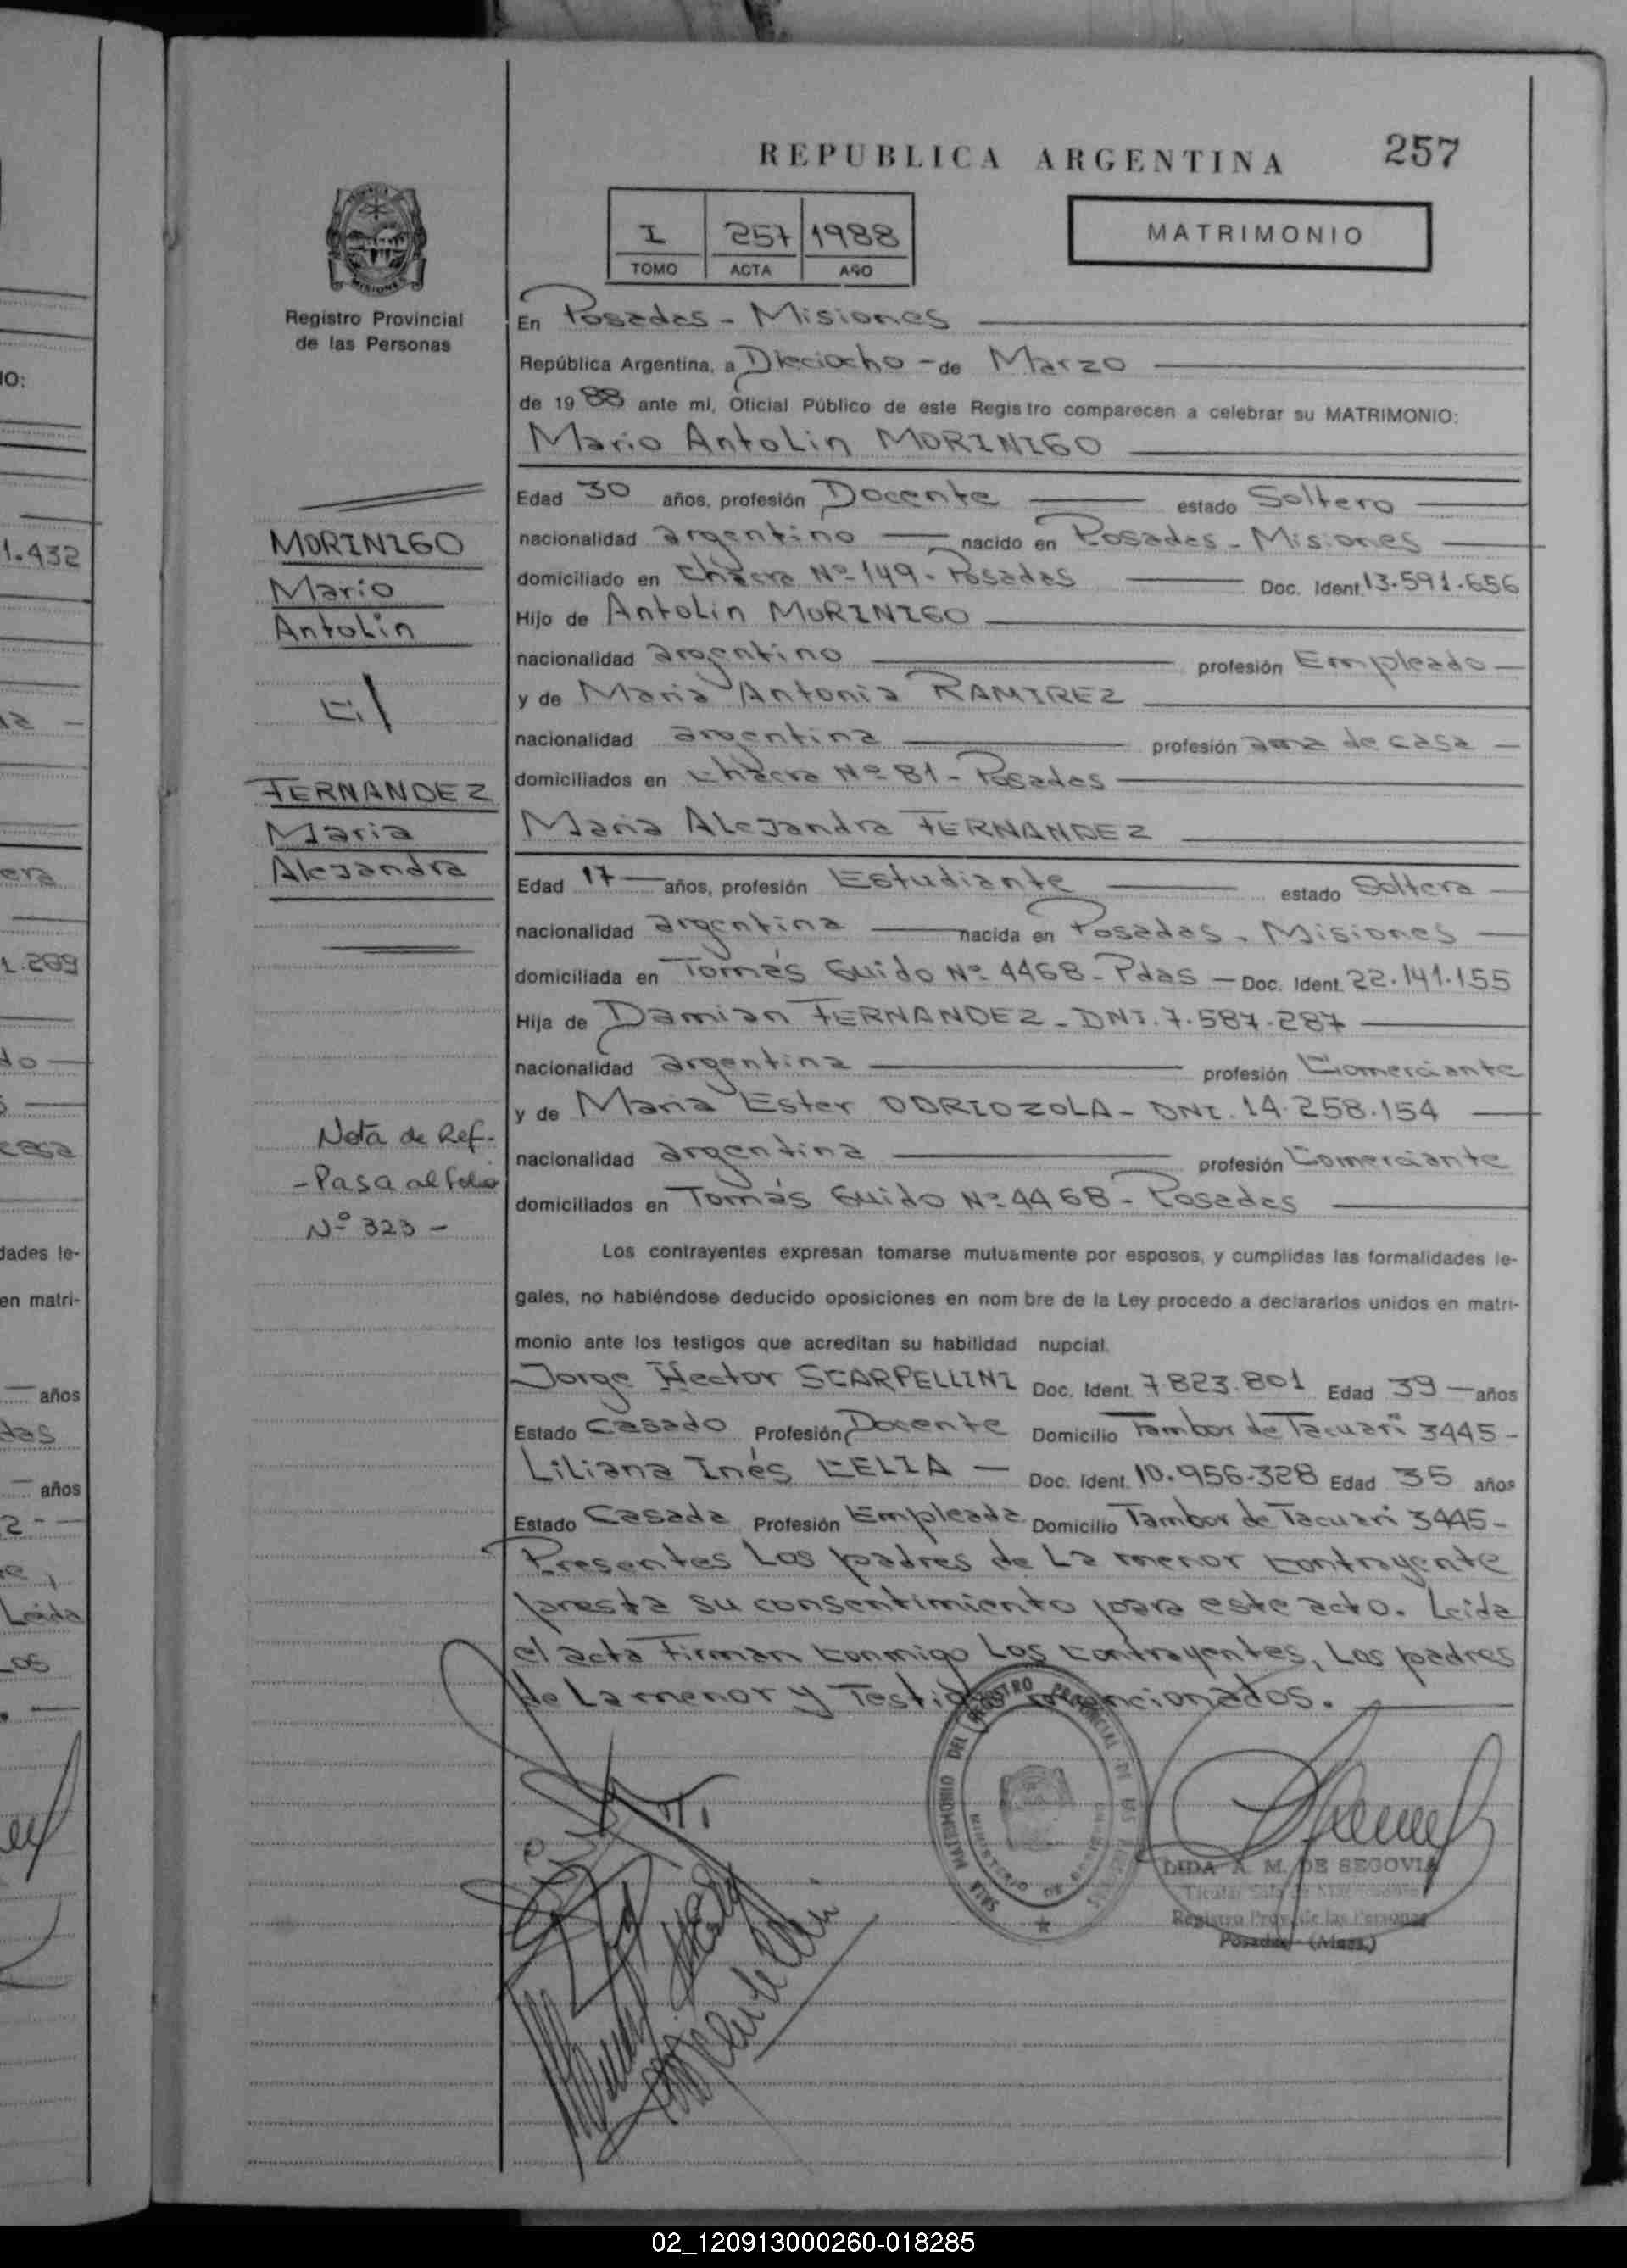 REPUBLICA ARGENTINA 257
I 257 1988
TOMO ACTA AÑO
MATRIMONIO
MISIONES
Registro Provincial
de las Personas
En Posadas - Misiones
República Argentina, a Dieciocho - de Marzo
de 1988 ante mi, Oficial Público de este Registro comparecen a celebrar su MATRIMONIO:
Mario Antolin MORINIGO
Edad 30 años, profesión Docente estado Soltero
nacionalidad argentino nacido en Posadas - Misiones
domiciliado en Chacra Nº 149 - Posadas Doc. Ident. 13.591.656
Hijo de Antolin MORINIGO
nacionalidad argentino profesión Empleado
y de Maria Antonia RAMIREZ
nacionalidad argentina profesión ama de casa
domiciliados en Chacra Nº 81 - Posadas
Maria Alejandra FERNANDEZ
Edad 17 años, profesión Estudiante estado Soltera
nacionalidad argentina nacida en Posadas - Misiones
domiciliada en Tomás Guido Nº 4468 - Pdas - Doc. Ident. 22.141.155
Hija de Damian FERNANDEZ - DNI. 7.587.287
nacionalidad argentina profesión Comerciante
y de Maria Ester ODRIOZOLA - DNI. 14.258.154
nacionalidad argentina profesión Comerciante
domiciliados en Tomás Guido Nº 4468 - Posadas
Los contrayentes expresan tomarse mutuamente por esposos, y cumplidas las formalidades le-
gales, no habiéndose deducido oposiciones en nom bre de la Ley procedo a declararlos unidos en matri-
monio ante los testigos que acreditan su habilidad nupcial.
Jorge Hector SCARPELLINI Doc. Ident. 7.823.801 Edad 39 años
Estado Casado Profesión Docente Domicilio Tambor de Tacuari 3445 -
Liliana Inés CELIA - Doc. Ident. 10.956.328 Edad 35 años
Estado Casada Profesión Empleada Domicilio Tambor de Tacuari 3445 -
Presentes Los padres de La menor contrayente
presta su consentimiento para este acto. Leida
el acta firman conmigo Los contrayentes, Los padres
de La menor y Testigos mencionados.
MORINIGO
Mario
Antolin
C/
FERNANDEZ
Maria
Alejandra
Nota de Ref-
- Pasa al folio
Nº 323 -
SALA MATRIMONIO DEL REGISTRO PROVINCIAL DE LAS PERSONAS
MINISTERIO DE GOBIERNO
LIDIA A. M. DE SEGOVIA
Titular Sala de Matrimonio
Registro Prov. de las Personas
Posadas - (Mnes.)
1.432
1.289
casa
dades le-
en matri-
años
das
años
Leida
Los
02_120913000260-018285